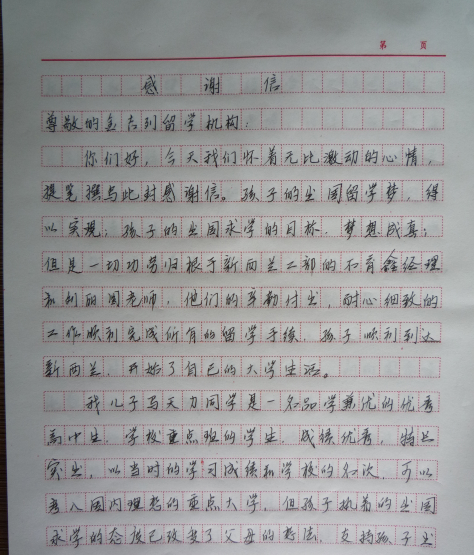 第 页
感谢信
尊敬的金吉列留学机构:
你们好,今天我们怀着无比激动的心情,
提笔撰写此封感谢信。孩子的出国留学梦,得
以实现;孩子的出国求学的目标,梦想成真;
但是一切功劳归根于新西兰二部的不育鑫经理
和刘丽图老师,他们的辛勤付出,耐心细致的
工作顺利完成所有的留学手续,孩子顺利到达
新西兰,开始了自己的大学生活。
我儿子马天力同学是一名品学兼优的优秀
高中生,学校重点班的学生,成绩优秀,特长
突出,以当时的学习成绩和学校的名次,可以
考入国内理想的重点大学,但孩子执着的出国
求学的态度已改变了父母的想法,支持孩子出